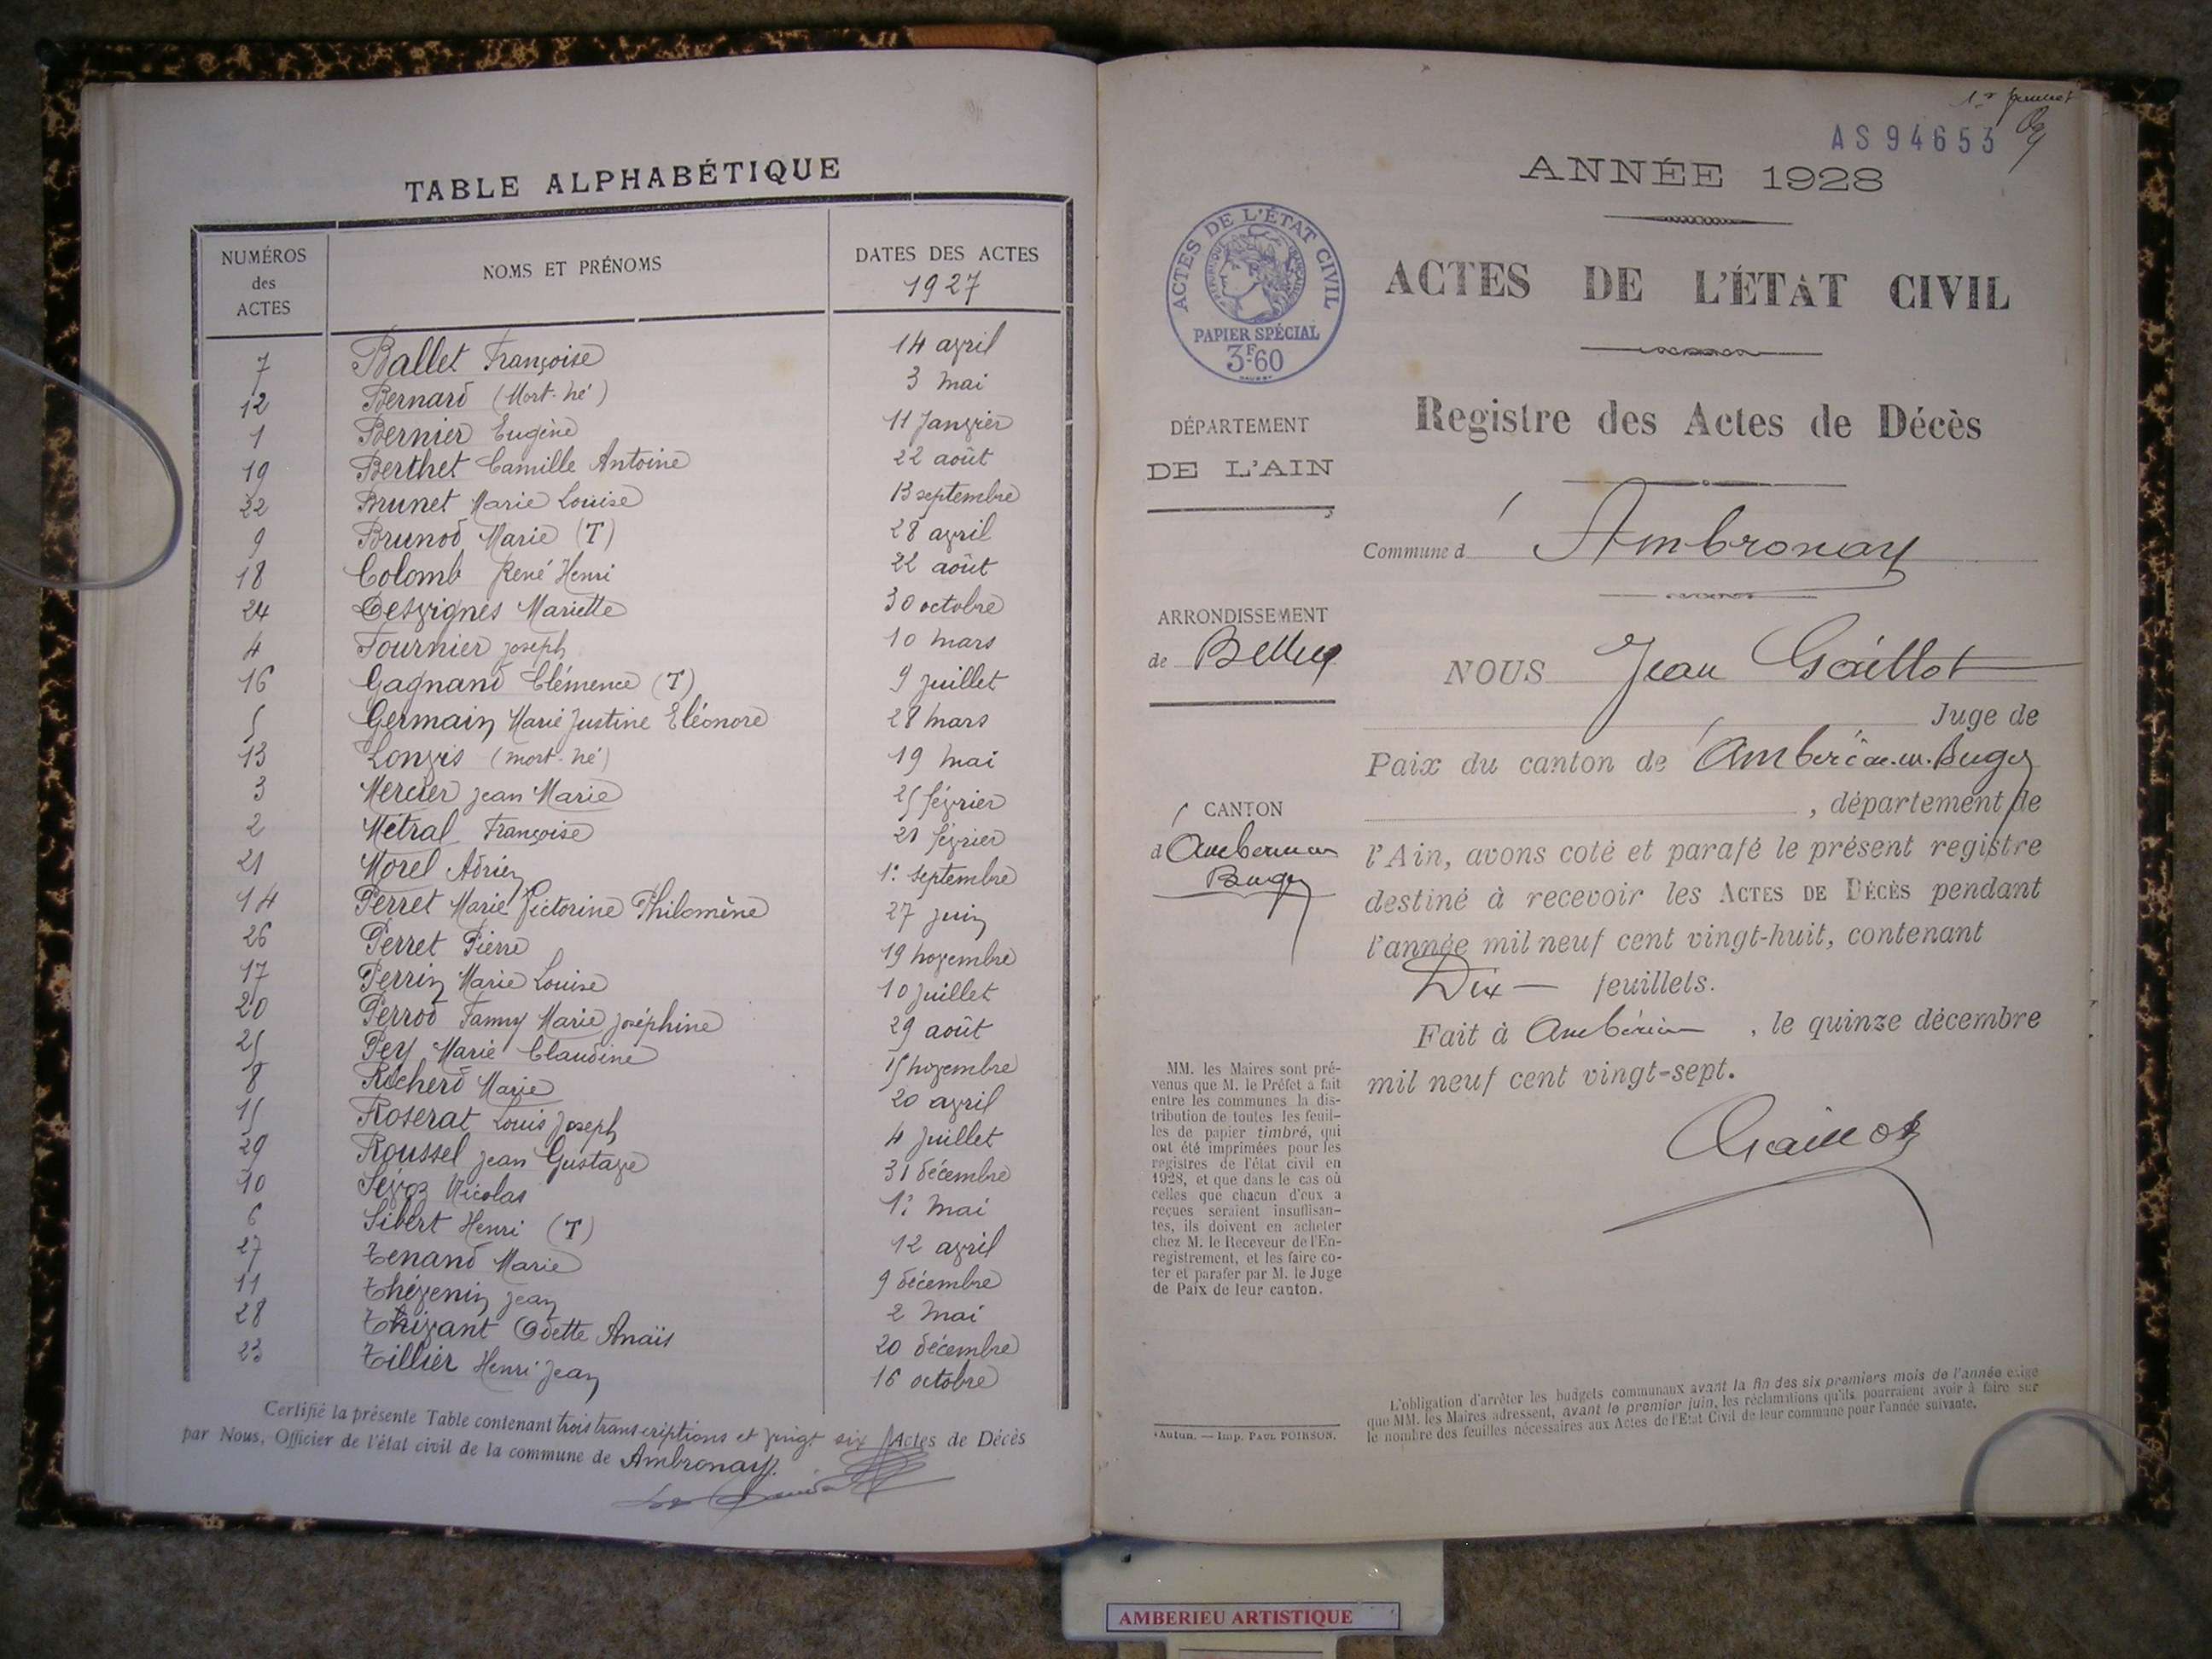 TABLE ALPHABÉTIQUE
NUMÉROS des ACTES NOMS ET PRÉNOMS DATES DES ACTES 1927
7 Ballet Françoise 14 avril
12 Bernard (Mort-né) 3 mai
1 Bernier Eugène 11 Janvier
19 Berthet Camille Antoine 22 août
22 Brunet Marie Louise 13 septembre
9 Brunod Marie (T) 28 avril
18 Colomb René Henri 22 août
24 Desvignes Mariette 30 octobre
4 Fournier Joseph 10 mars
16 Gagnand Clémence (T) 9 juillet
5 Germain Marie Justine Eléonore 28 mars
13 Lonvis (mort-né) 19 mai
3 Mercier Jean Marie 25 février
2 Métral Françoise 21 février
21 Morel Adrien 1er septembre
14 Perret Marie Victorine Philomène 27 juin
26 Perret Pierre 19 novembre
17 Perrin Marie Louise 10 juillet
20 Perrod Fanny Marie Joséphine 29 août
25 Pey Marie Claudine 15 novembre
8 Rocherd Marie 20 avril
15 Roserat Louis Joseph 4 Juillet
29 Roussel Jean Gustave 31 décembre
10 Sévoz Nicolas 1er mai
6 Sibert Henri (T) 12 avril
27 Tenand Marie 9 décembre
11 Thévenin Jean 2 mai
28 Thivant Odette Anaïs 20 décembre
23 Tillier Henri Jean 16 octobre
Certifié la présente Table contenant trois transcriptions et vingt six Actes de Décès
par Nous, Officier de l'état civil de la commune de Ambronay.
AS94653
ANNÉE 1928
ACTES DE L'ÉTAT CIVIL
RÉPUBLIQUE FRANÇAISE
PAPIER SPÉCIAL
3F60
ACTES DE L'ÉTAT CIVIL
Registre des Actes de Décès
DÉPARTEMENT
DE L'AIN
Commune d'Ambronay
ARRONDISSEMENT
de Belley
CANTON
d'Ambérieu en
Bugey
NOUS Jean Gaillot
Juge de
Paix du canton de Ambérieu-en-Bugey
, département de
l'Ain, avons coté et parafé le présent registre
destiné à recevoir les ACTES DE DÉCÈS pendant
l'année mil neuf cent vingt-huit, contenant
Dix feuillets.
Fait à Ambérieu, le quinze décembre
mil neuf cent vingt-sept.
Gaillot
MM. les Maires sont pré-
venus que M. le Préfet a fait
entre les communes la dis-
tribution de toutes les feuil-
les de papier timbré, qui
ont été imprimées pour les
registres de l'état civil en
1928, et que dans le cas où
celles que chacun d'eux a
reçues seraient insuffisan-
tes, ils doivent en acheter
chez M. le Receveur de l'En-
registrement, et les faire co-
ter et parafer par M. le Juge
de Paix de leur canton.
Autun. — Imp. PAUL POIRSON.
L'obligation d'arrêter les budgets communaux avant la fin des six premiers mois de l'année exige
que MM. les Maires adressent, avant le premier juin, les réclamations qu'ils pourraient avoir à faire sur
le nombre des feuilles nécessaires aux Actes de l'Etat Civil de leur commune pour l'année suivante.
AMBERIEU ARTISTIQUE